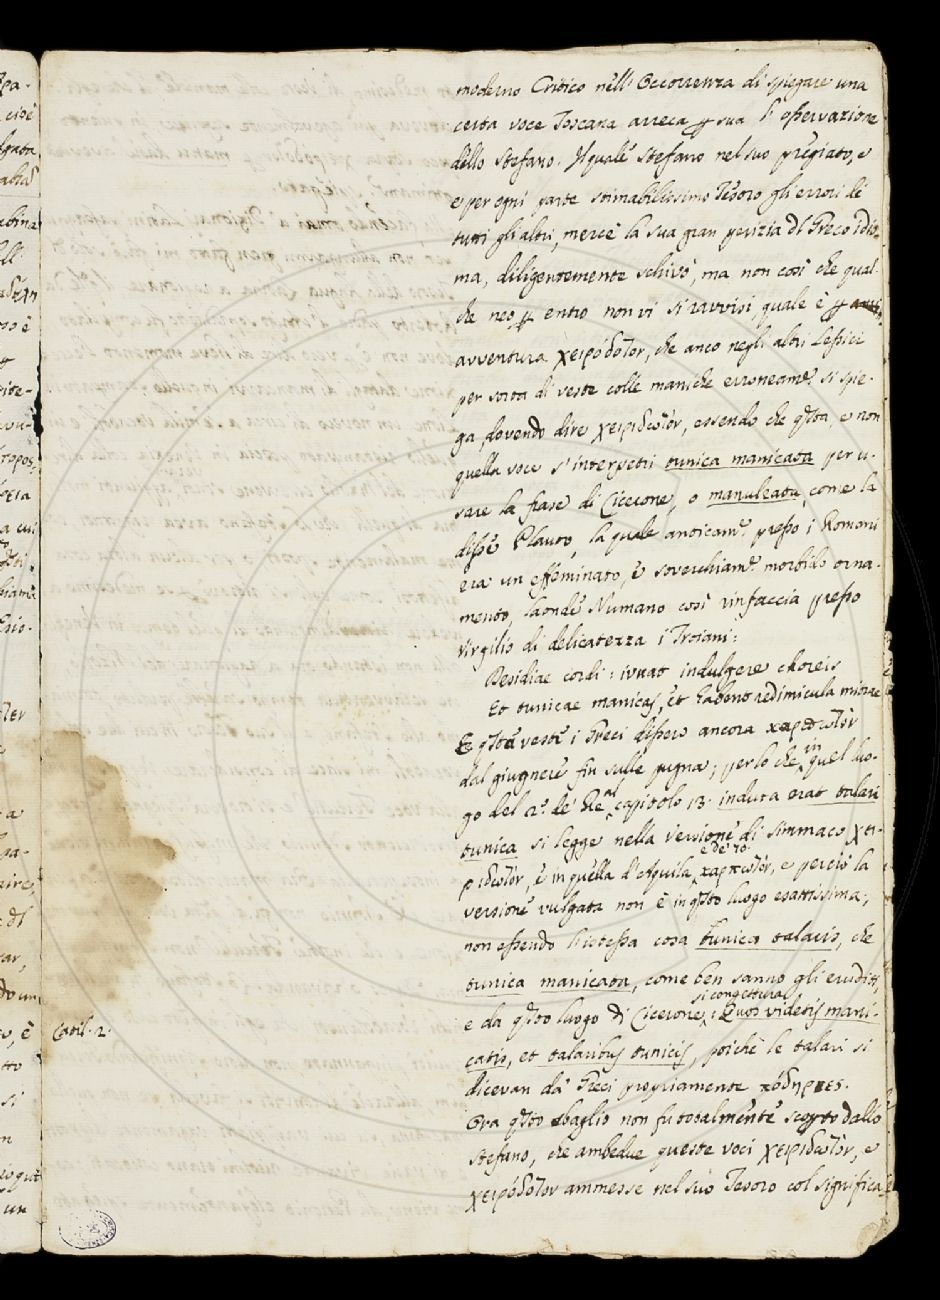 moderno Critico nell' Occorrenza di spiegare una
certa voce Toscana arreca p sua l' osservazione
dello Stefano. Il quale Stefano nel suo pregiato, e
e per ogni parte stimabilissimo Tesoro gli errori di
tutti gli altri, mercè la sua gran perizia dl Greco idio-
ma, diligentemente schivò, ma non così che qual-
che neo p entro non vi si ravvisi, quale è p
avventura χειρόδοτον, che anco negli altri Lessici
per sorta di veste colle maniche erroneamᵉ. si spie-
ga, dovendo dire χειριδωτόν, essendo che qsta, e non
quella voce s'interpetri tunica manicata per u-
sare la frase di Cicerone, o manuleata, come la
disse Plauto, la quale anticamᵉ. presso i Romani
era un effeminato, e soverchiamᵉ. morbido orna-
mento, laonde Numano così rinfaccia presso
Virgilio di delicatezza i Troiani:
Desidiae cordi: iuvat indulgere choreis
Et tunicae manicas, et habent redimicula mitrae
E qsta veste i Greci dissero ancora καρπωτὸν
dal giugnere fin sulle pugna; perlo che, in quel luo-
go del 2º. de' Re al capitolo 13. induta erat talari
tunica si legge nella versione di Simmaco χει-
ριδωτὸν, e in quella d'Aquila, e de' 70. καρπωτὸν, e perciò la
versione vulgata non è in qsto luogo esattissima;
non essendo l'istessa cosa tunica talaris, che
tunica manicata, come ben sanno gli eruditi,
e da qsto luogo di Cicerone si congettura: Quos videtis mani-
catis, et talaribus tunicis, poichè le talari si
dicevan da' Greci propriamente ποδήρεες.
Ora qsto sbaglio non fu totalmente scorto dallo
Stefano, che ambedue queste voci χειριδωτὸν, e
χειρόδοτον ammesse nel suo Tesoro col significa-
Catil. 2.